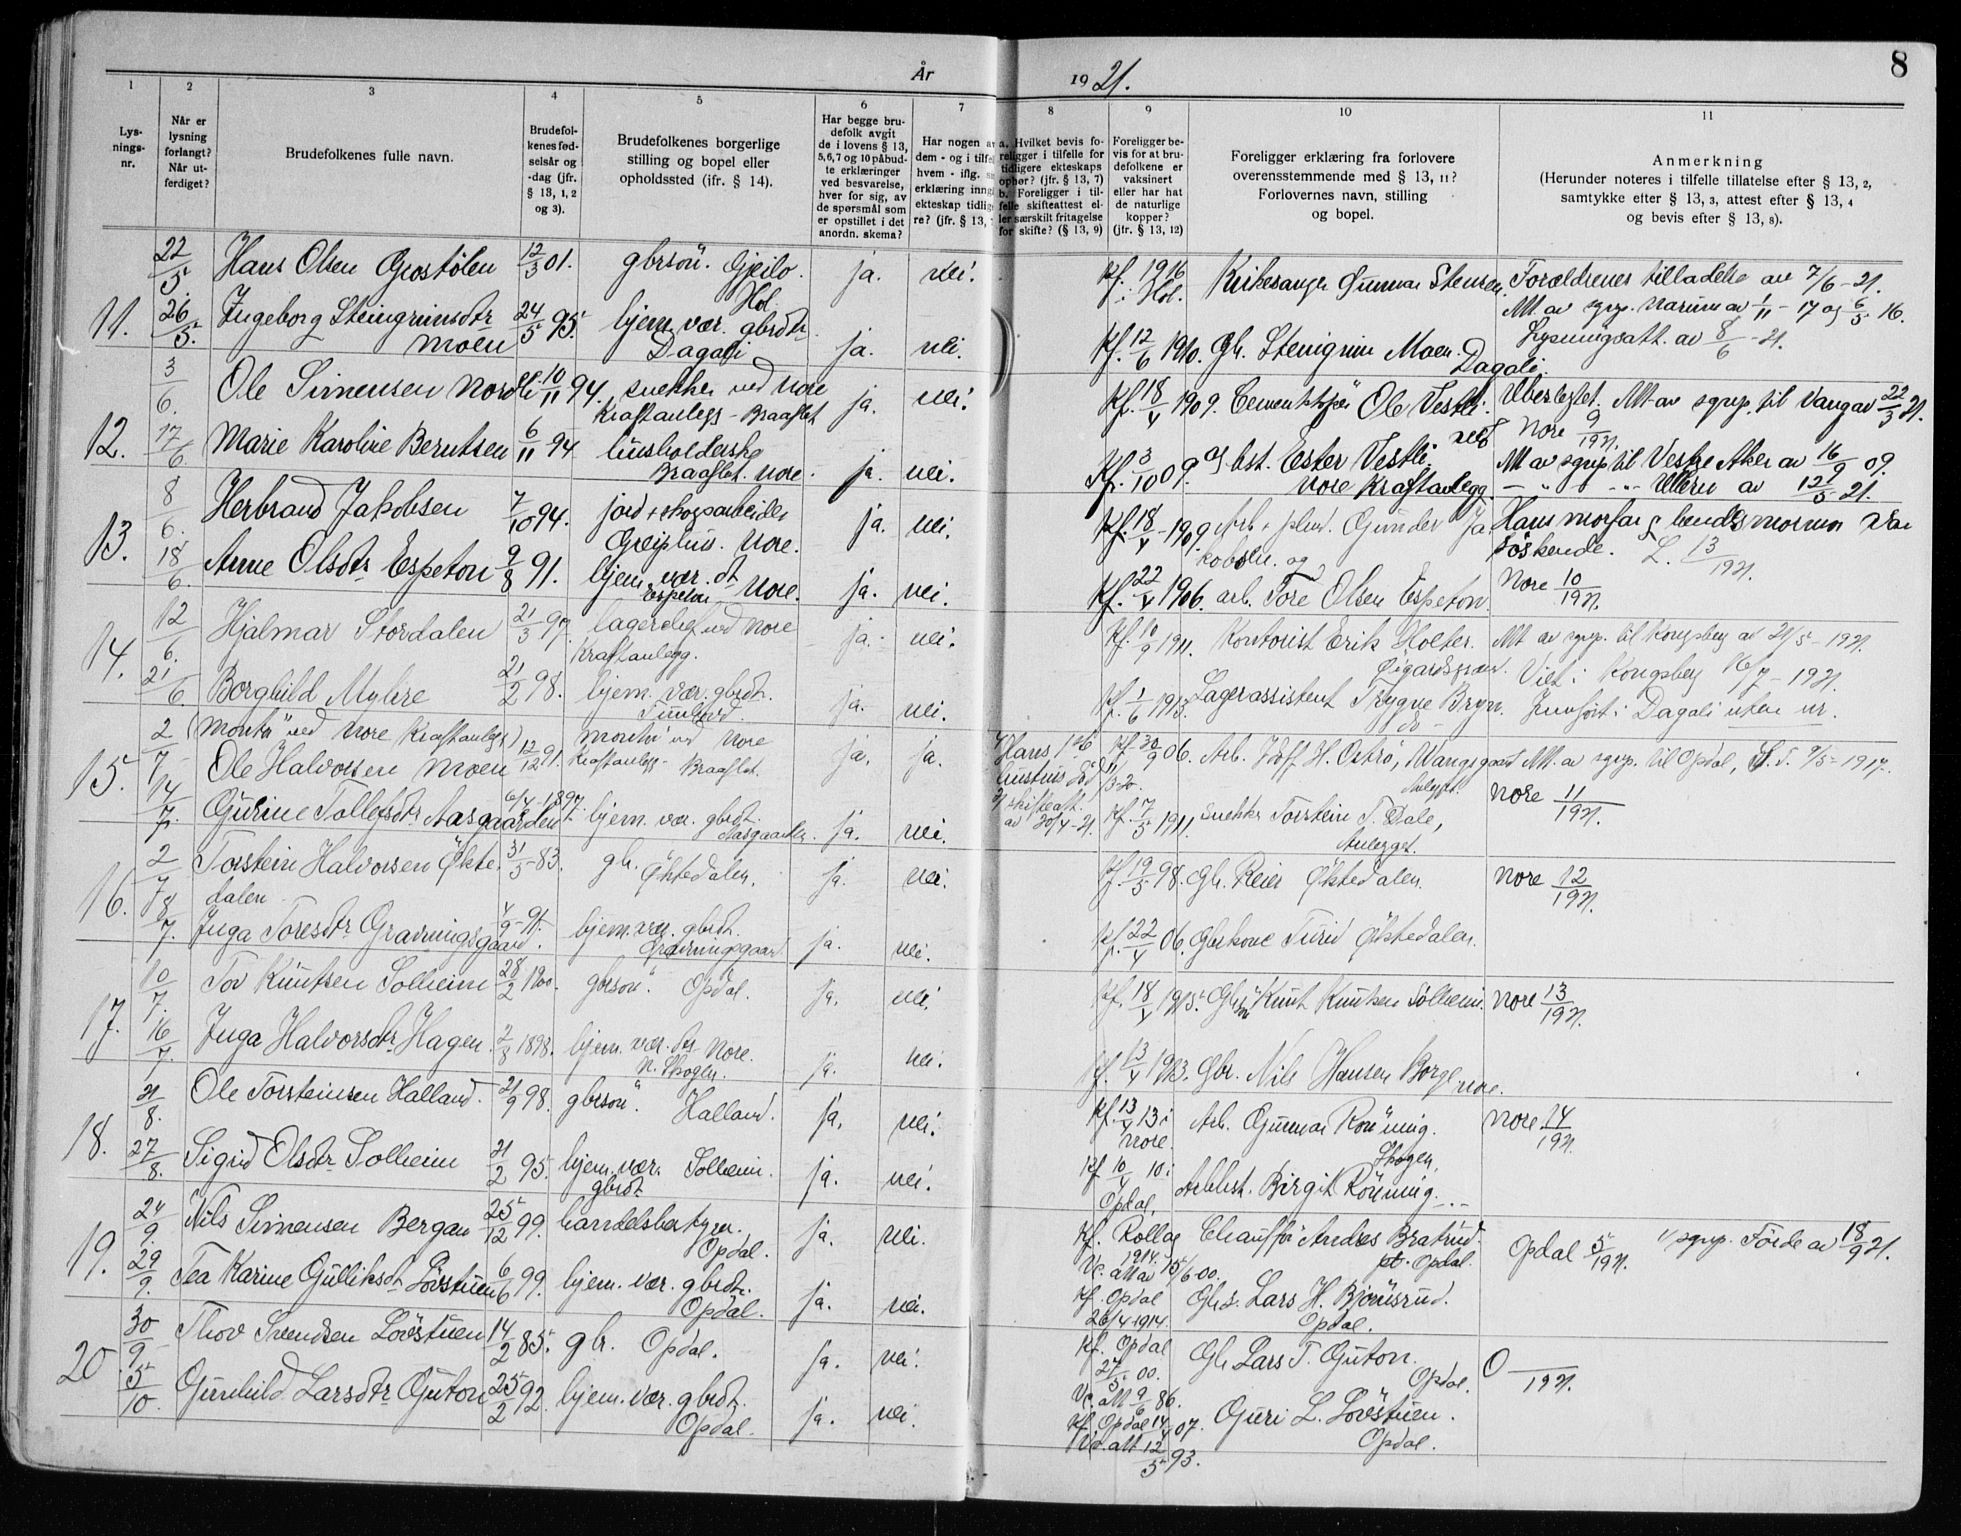 År 1921.
8
1
2
3
4
5
6
7
8
9
10
11
Lys-
nings-
nr.
Når er
lysning
forlangt?
Når ut-
ferdiget?
Brudefolkenes fulle navn.
Brudefol-
kenes fød-
selsår og
-dag (jfr.
§ 13, 1, 2
og 3).
Brudefolkenes borgerlige
stilling og bopel eller
opholdssted (ifr. § 14).
Har begge bru-
defolk avgit
de i lovens § 13,
5,6,7 og 10 påbud-
te erklæringer
ved besvarelse,
hver for sig, av
de spørsmål som
er opstillet i det
anordn. skema?
Har nogen av
dem - og i tilfel
hvem - iflg. s
erklæring inng
ekteskap tidlig
re? (jfr. § 13,
a. Hvilket bevis fo-
religger i tilfelle for
tidligere ekteskaps
ophør? (jfr. § 13, 7)
b. Foreligger i til-
felle skifteattest el-
ler særskilt fritagelse
for skifte? (§ 13, 9)
Foreligger be-
vis for at bru-
defolkene er
vaksinert
eller har hat
de naturlige
kopper?
(jfr. § 13, 12)
Foreligger erklæring fra forlovere
overensstemmende med § 13, 11?
Forlovernes navn, stilling
og bopel.
Anmerkning
(Herunder noteres i tilfelle tillatelse efter § 13, 2,
samtykke efter § 13, 3, attest efter § 13, 4
og bevis efter § 13, 8).
11.
22/5. Hans Olsen Grostølen 12/3 01. gbrsøn. Gjeilo. Hol. ja. nei. Kf. 1916 i Hol. Kirkesanger Gunnar Stensen. Forældrenes tilladelse av 7/6-21.
26/5. Ingeborg Steingrimsdtr Moen 24/5 95. hjem. vær. gbrdtr. Dagali ja. nei. Kf. 12/6 1910. Gbr. Steingrim Moen. Dagali. Lysningsatt. av 8/6-21.
12.
3/6. Ole Simensen Nordli 10/11 94. snekker ved Nore Kraftanlegg - Braaflot ja. nei. Kf. 18/4 1909. Ole Vestli. Att av sgrp. til Vang av 22/3 21.
17/6. Marie Karoline Berntsen 6/11 94 husholderske Braaflot. Nore. ja. nei. Kf. 3/10 09. og hst. Ester Vestli. Nore Kraftanlegg. Nore 9/1921.
Att av sgrp til Vestre Aker av 16/9 09.
- " - " - Ullern av 12/5-21.
13.
8/6. Herbrand Jakobsen 7/10 94. jord + skogarbeider Nore. ja. nei. Kf. 18/4-1909 Arb. Gunder Jakobsen. og Hans morfar & hendes mormor var søskende.
18/6. Anne Olsdtr Espeton 9/8 91. hjem. vær. dt Espeton Nore. ja. nei. Kf. 22/4 1906. arb. Tore Olsen Espeton. Nore 10/1921.
14.
12/6. Hjalmar Stordalen 21/3 97. lagerchef ved Nore Kraftanlegg. ja. nei. Kf. 10/9 1911. Kontorist Erik Holter. Att av sgrp. til Kongsberg av 21/5-1921.
21/6 Borghild Myhre 21/2 98. hjem. vær. gbrdt. ja. nei. Kf. 1/6 1913. Lagerassistent Trygve Bryn. Viet i Kongsberg 16/7-1921. Innført i Dagali uten nr.
15.
2/7 (Montør ved Nore Kraftanlegg) Ole Halvorsen Moen 12/12 91. montør ved Nore Kraftanlegg - Braaflot. ja. ja. Hans 1ste hustru død 11/3 20. 2/ skifteatt. av 20/4-21. Kf. 30/9 06. Arb. H. Oströ, Att av sgrp. til Opdal, 9/5-1917.
14/7. Gurine Tollefsdtr. Aasgaarden 6/4-1897. hjem. vær. gbrdt. Aasgaarden. ja. nei. Kf. 7/5 1911. snekker Torstein T. Dale, Anlegget. Nore 11/1921.
16.
2/7 Torstein Halvorsen Økte-dalen 31/5-83. gbr. Øktedalen. ja. nei. Kf. 19/5 98. Gbr. Reier Øktedalen. Nore 12/1921.
8/7. Inga Toresdtr. Gravningsgaard. 4/9-91. hjem. vær. gbrdt. Gravningsgaard ja. nei. Kf. 22/4 06. Gbrkone Turid Øktedalen.
17.
10/7. Tov Knutsen Solheim 28/2 1900. gbrsøn. Opdal. ja. nei. Kf. 18/4 1915. Gbrsøn Knut Knutsen Solheim. Nore 13/1921.
16/7. Inga Halvorsdtr. Hagen. 2/8 1898. hjem. vær. Nore. N. Skogen. ja. nei. Kf. 13/4 1913. Gbr. Nils Hansen Borge Nore.
18.
21/8. Ole Torsteinsen Halland. 21/9 98. gbrsøn. Halland. ja. nei. Kf. 13/4 13 i Nore. Arb. Gunnar Rönning. Skogen. Nore 14/1921.
27/8. Sigrid Olsdtr Solheim 21/2 95. hjem. vær. gbrdt Solheim. ja. nei. Kf. 10/4 10 i Opdal. Arbhst. Birgit Rönning. - " -
19.
24/9. Nils Simensen Bergan 25/12 99. handelsbestyrer. Opdal. ja. nei. Kf. Rollag 1914. Vc. att av 15/6 00. Chauffør Andres Bratrud. pt. Opdal. Opdal 5/1921. sgrp. Førde av 18/9 21.
29/9. Tea Karine Gulliksdt. Lörstuen 6/6 99. hjem. vær. gbrdtr. Opdal. ja. nei. Kf. Opdal 26/4 1914. Gbrs. Lars H. Björnsrud. Opdal.
20
30/9 Thov Svendsen Lövstuen 14/2 85. gbr. Opdal. ja. nei. Kf. Opdal 27/5 00. Vc. att 9/6 86. Gbr. Lars T. Guton. Opdal. O /1921.
5/10. Gunhild Larsdtr. Guton 25/2 92. hjem. vær. gbrdt. Opdal. ja. nei. Kf. Opdal 14/4 07. Vc. att 12/5 93. Guri L. Lövstuen. Opdal.